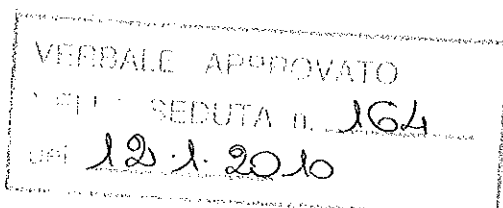 VERBALE APPROVATO
SEDUTA n. 164
12.1.2010